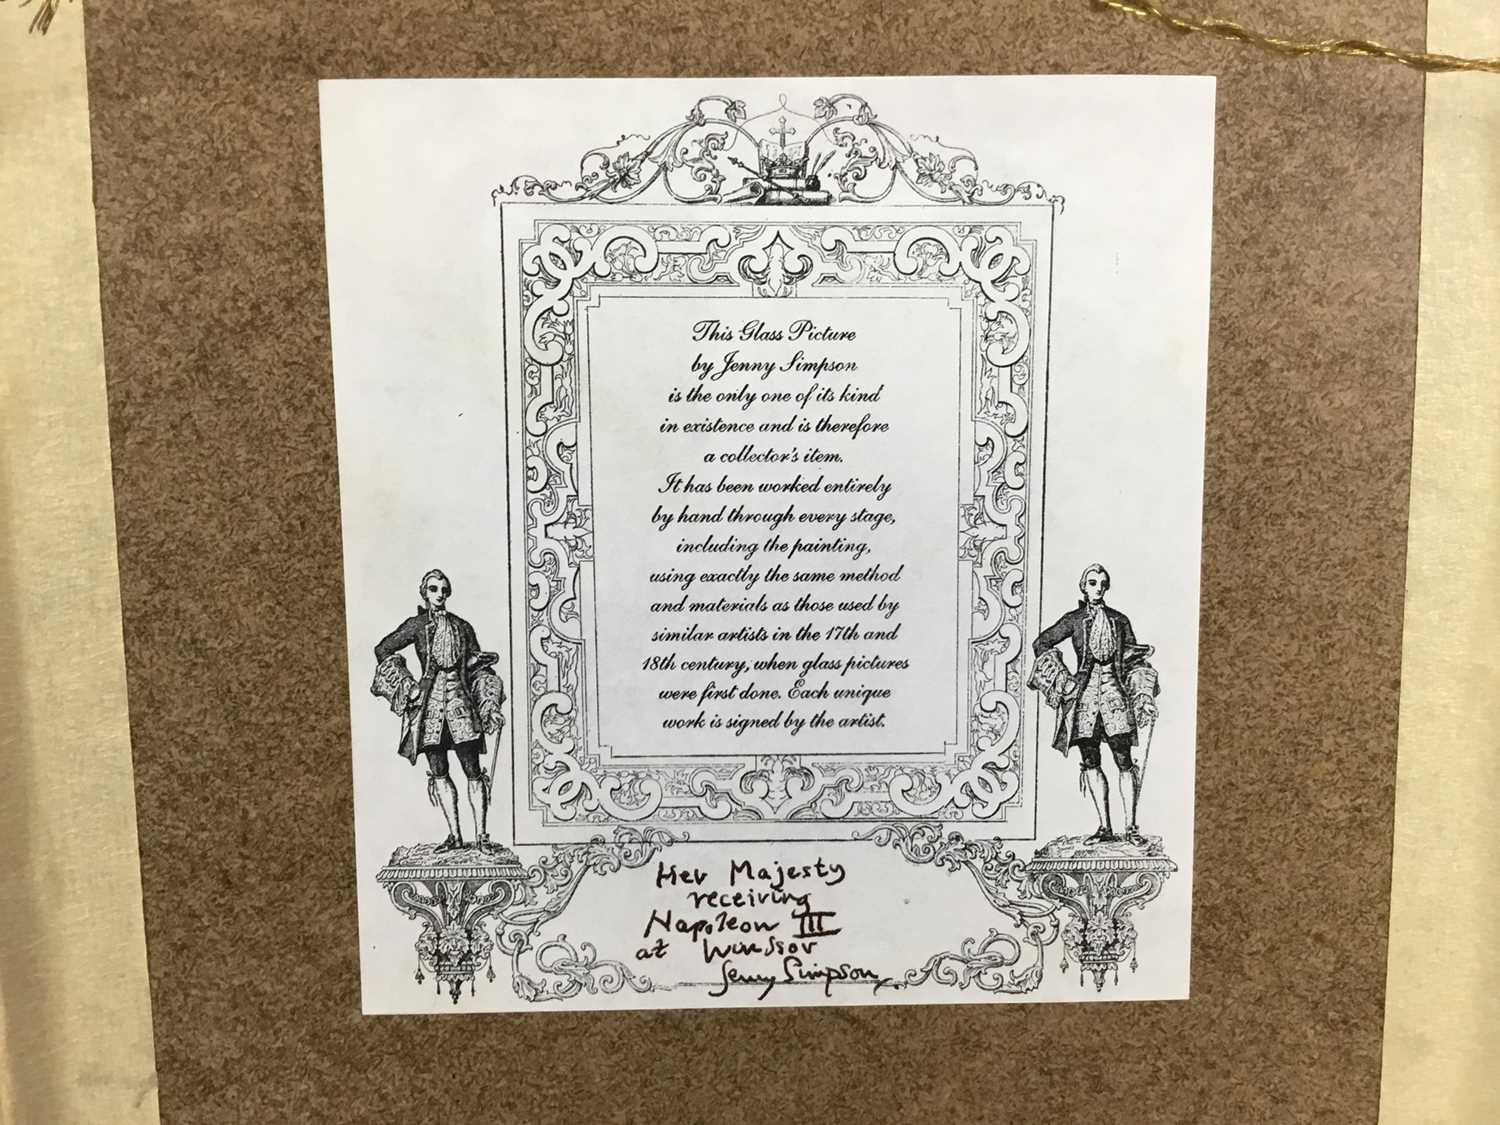 This Glass Picture
by Jenny Simpson
is the only one of its kind
in existence and is therefore
a collector's item.
It has been worked entirely
by hand through every stage,
including the painting,
using exactly the same method
and materials as those used by
similar artists in the 17th and
18th century, when glass pictures
were first done. Each unique
work is signed by the artist.
Her Majesty
receiving
Napoleon III
at Windsor
Jenny Simpson